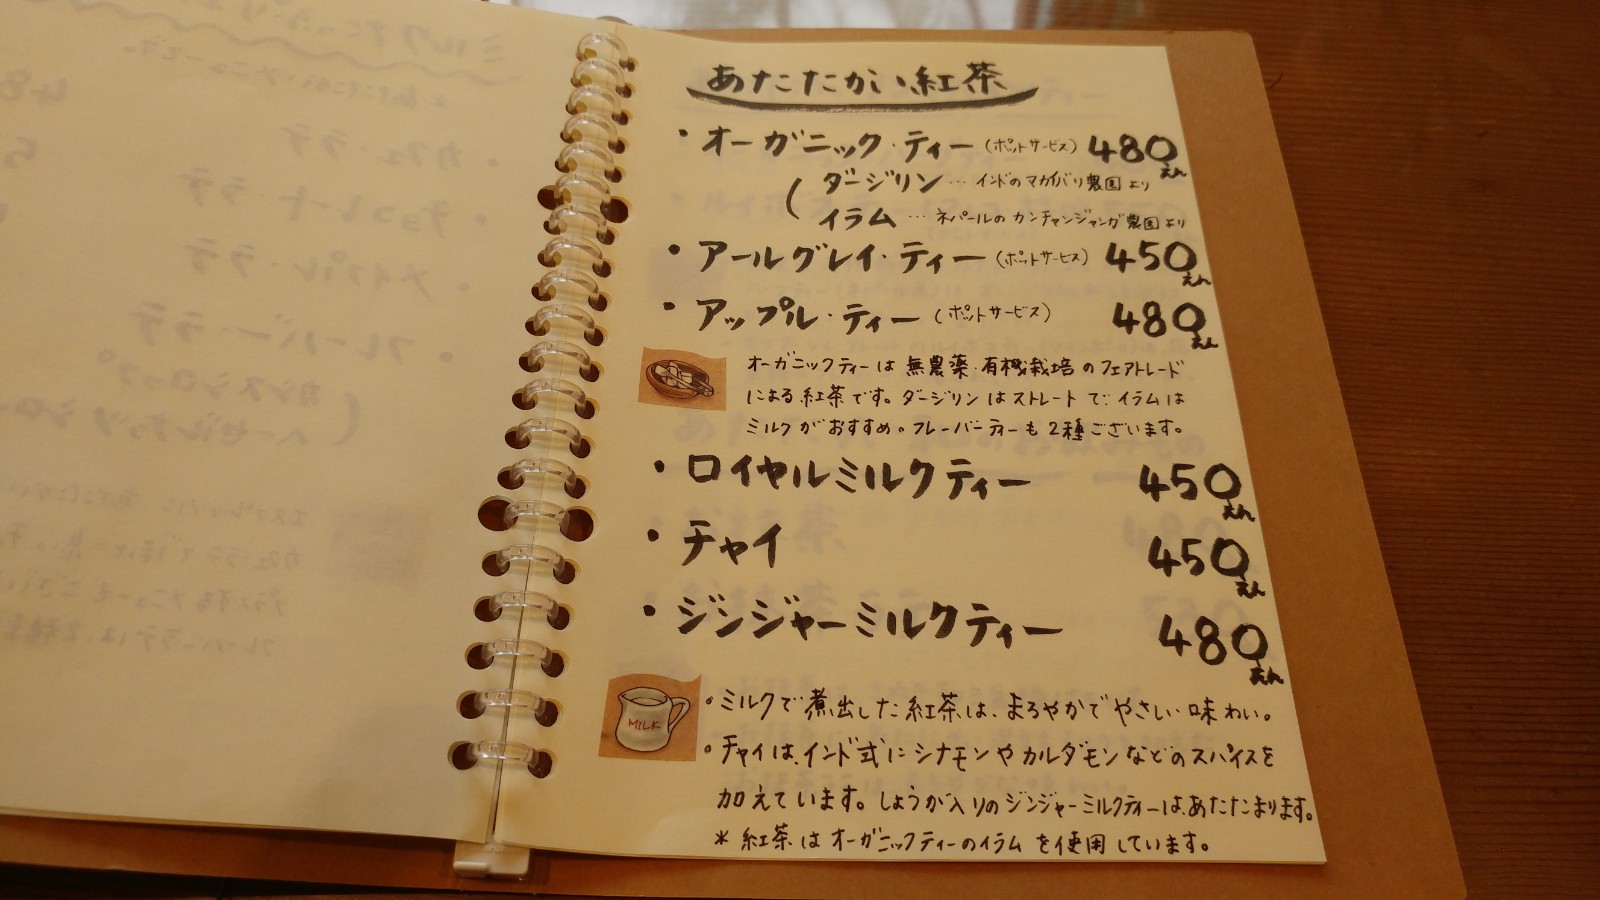 あたたかい紅茶
・オーガニック・ティー(ポットサービス) 480えん
(ダージリン…インドのマカイバリ農園より
イラム…ネパールのカンチャンジャンガ農園より
・アールグレイ・ティー(ポットサービス) 450えん
・アップル・ティー(ポットサービス) 480えん
オーガニックティーは無農薬・有機栽培のフェアトレード
による紅茶です。ダージリンはストレートで、イラムは
ミルクがおすすめ。フレーバーティーも2種ございます。
・ロイヤルミルクティー 450えん
・チャイ 450えん
・ジンジャーミルクティー 480えん
MILK
・ミルクで煮出した紅茶は、まろやかでやさしい味わい。
・チャイは、インド式にシナモンやカルダモンなどのスパイスを
加えています。しょうが入りのジンジャーミルクティーは、あたたまります。
*紅茶はオーガニックティーのイラムを使用しています。